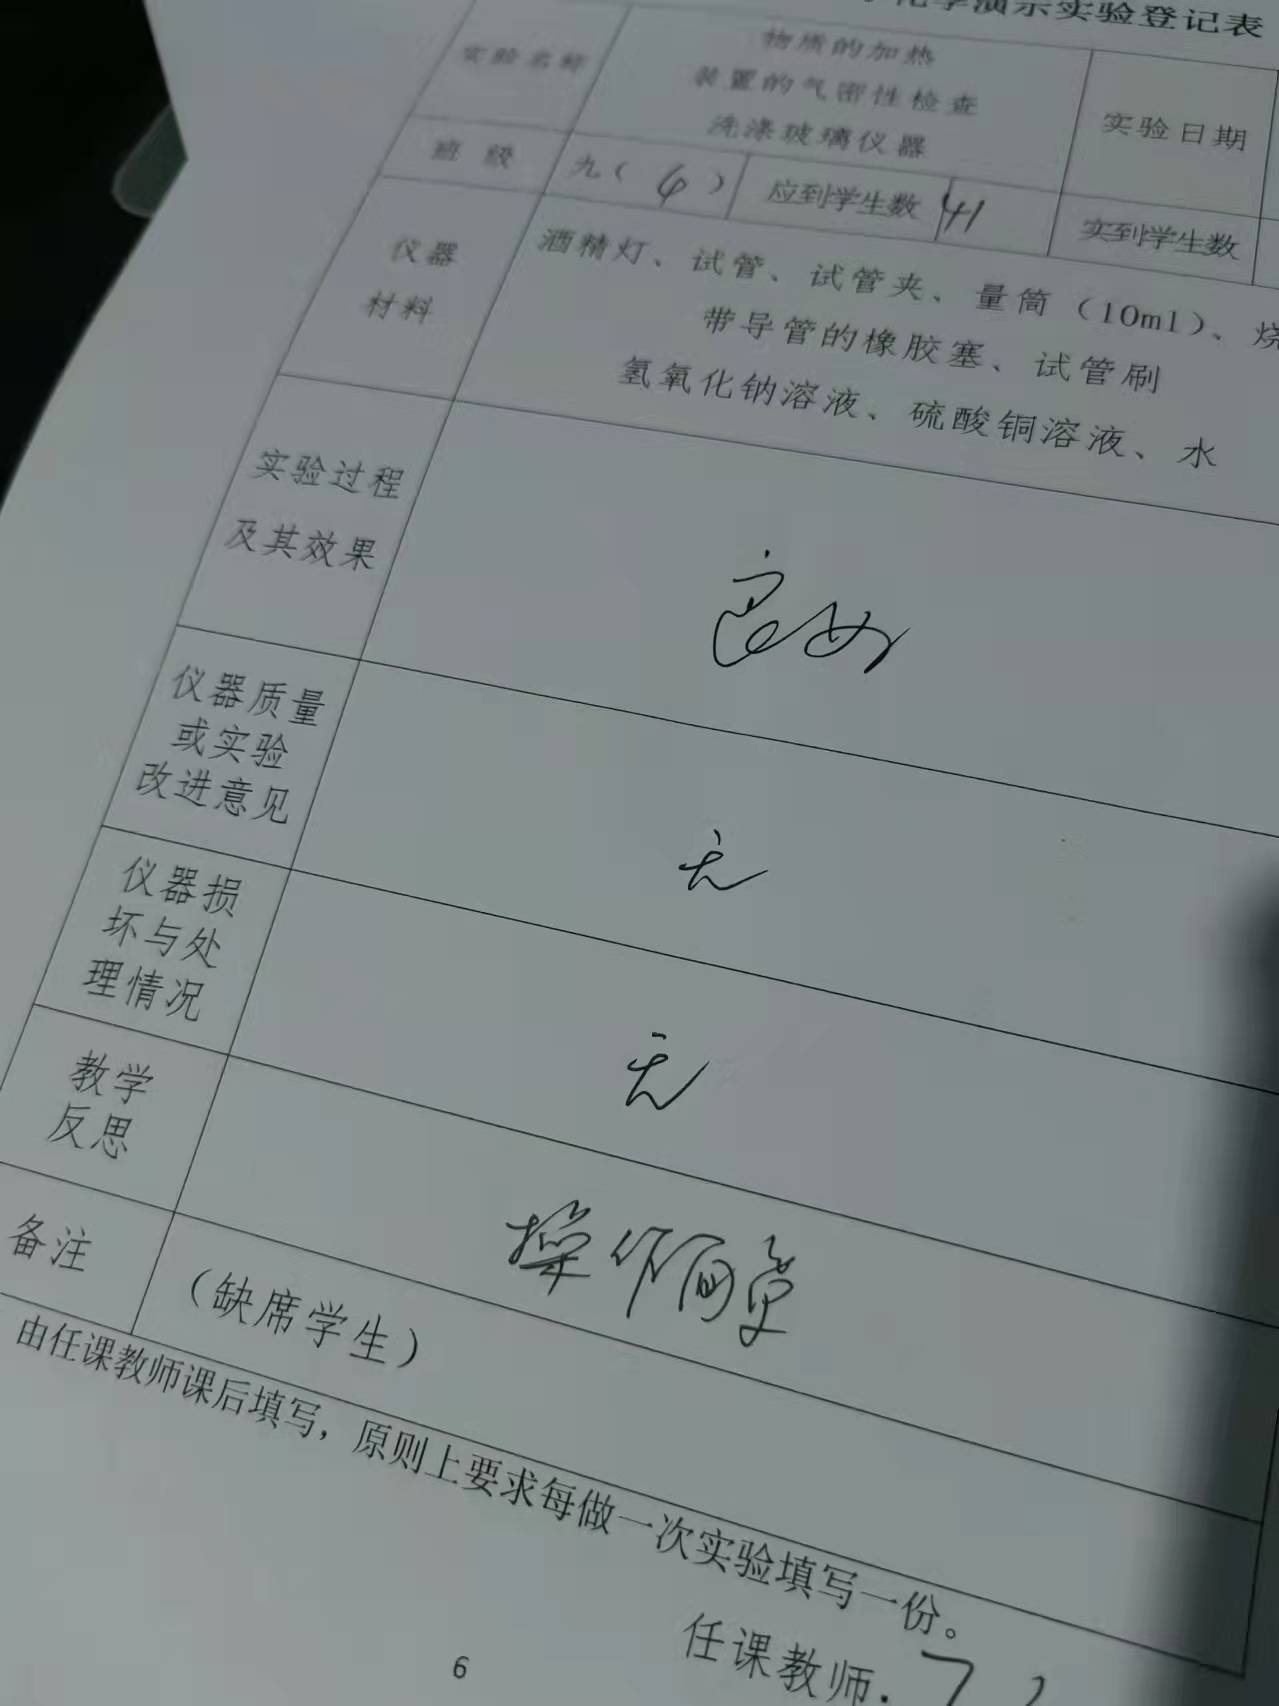 化学演示实验登记表
实验名称
物质的加热
装置的气密性检查
洗涤玻璃仪器
实验日期
班 级
九( 6 )
应到学生数
41
实到学生数
仪器
材料
酒精灯、试管、试管夹、量筒（10ml）、烧
带导管的橡胶塞、试管刷
氢氧化钠溶液、硫酸铜溶液、水
实验过程
及其效果
良好
仪器质量
或实验
改进意见
无
仪器损
坏与处
理情况
无
教学
反思
操作简单
备注
（缺席学生）
由任课教师课后填写，原则上要求每做一次实验填写一份。
任课教师.
6